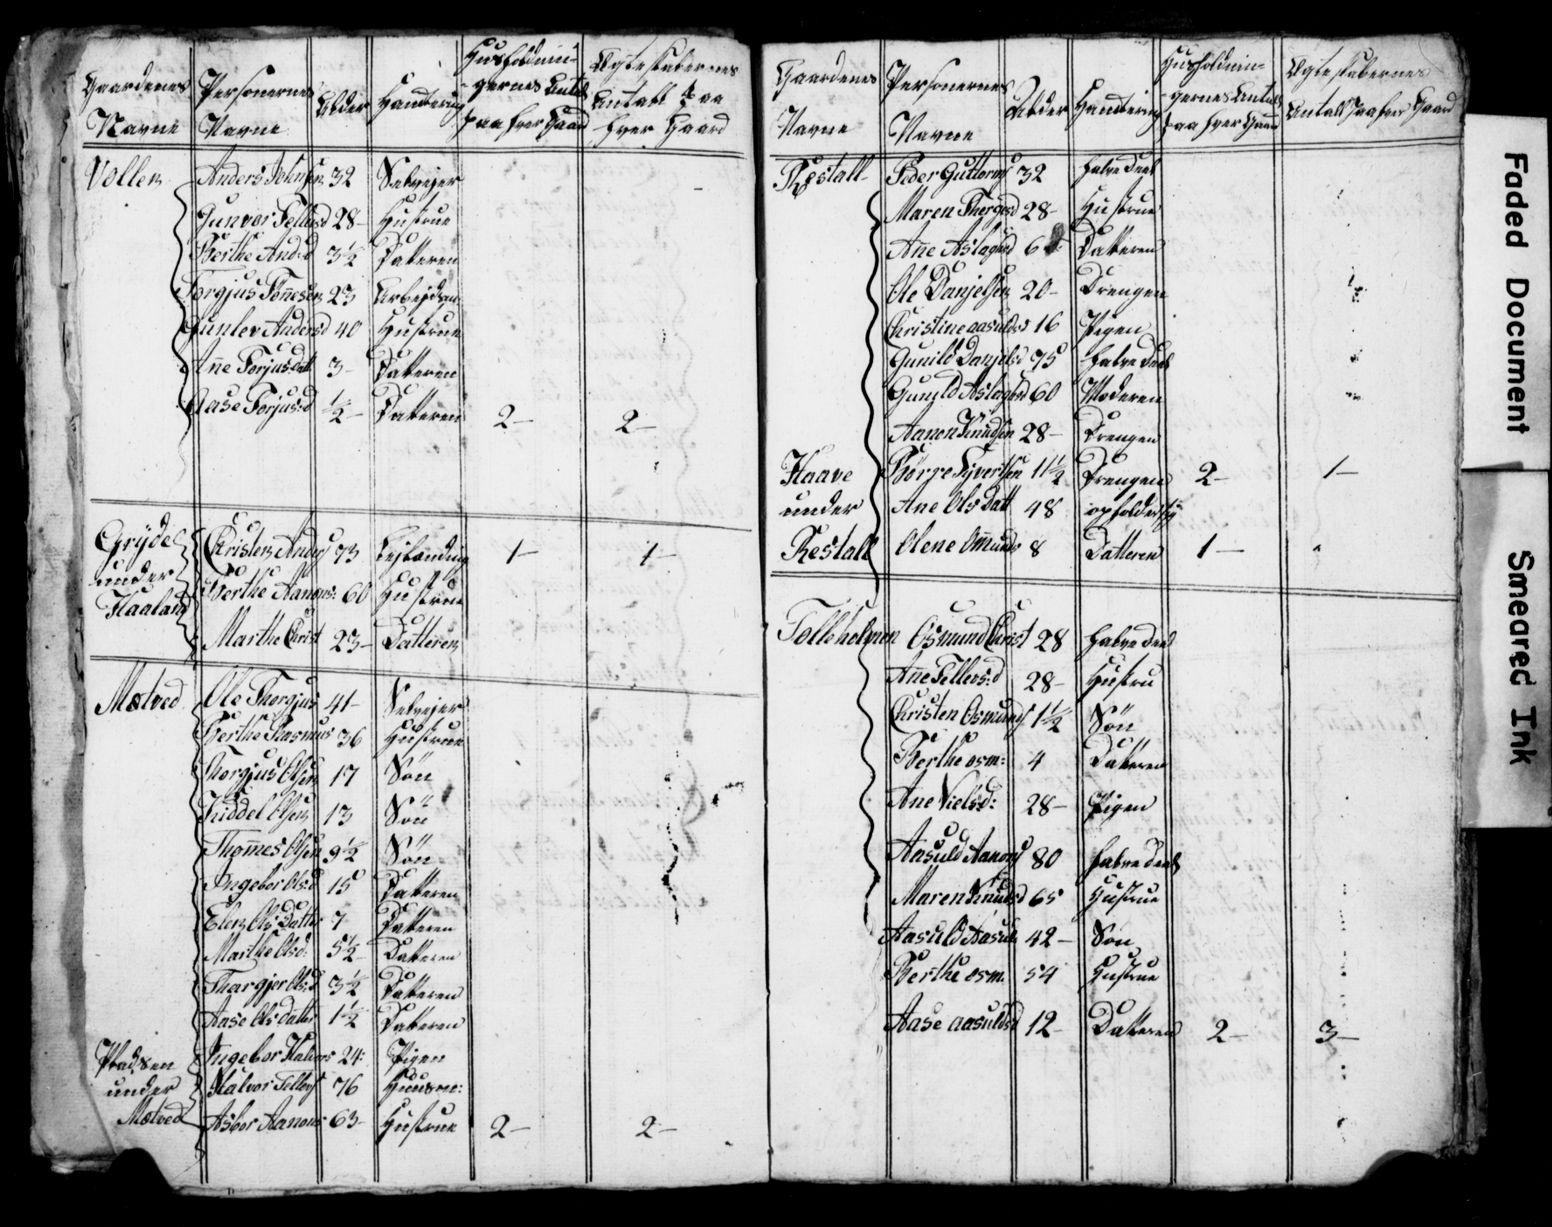 Gaardenes Navne | Personernes Navne | Alder | Handtering | Husholdnin-gernes Antal paa hver Gaard | Ægteskabernes Antall paa hver Gaard
Vollen | Anders Johnsen | 32 | Selvejer
Gunvor Tellefsd | 28 | Hustrue
Berthe And:d | 3½ | Datteren
Torgjus Tönnesen | 23
Gunlev Andersd | 40 | Hustrue
Añe Torjusdatt | 3 | Datteren
Aase Torjus:d | ½ | Datteren | 2 | 2
Gryde under Haaland | Christen Anders | 73 | 1 | 1
Berthe Aanons: | 60 | Hustrue
Marthe Christ | 23 | Datteren
Mælved | Ole Thorgjus | 41 | Selvejer
Berthe Rasmus | 36 | Hustrue
Thorgjus Olsen | 17 | Sön
Kiddel Olsen | 13 | Sön
Thom̃es Olsen | 9½ | Sön
Ingebor Ols:d | 15 | Datteren
Elen Ols Datter | 7 | Datteren
Marthe Olsd: | 5½ | Datteren
Thorgjer Ols:d | 3½ | Datteren
Aase Ols datter | 1½ | Datteren
Pladsen under Mælved | Ingebor Halvors | 24: | Pigen
Halvor Tellefs | 76 | Huusm:
Asbor Aanons | 63 | Hustrue | 2 | 2
Gaardenes Navne | Personernes Navne | Alder | Handtering | Husholdnin-gernes Antal paa hver Gaard | Ægteskabernes Antall paa hver Gaard
Røstall | Peder Guttorms | 32
Maren Thorgesd | 28 | Hustrue
Añe Aslagsd | 6 | Datteren
Ole Danjelsen | 20 | Drengen
Christine aasulds:d | 16 | Pigen
Gunild Danjels:d | 75
Gunild Aslagsd | 60 | Moderen
Aanon Knudsen | 28 | Drengen
Haave under Røstall | Børre Syvertsen | 11½ | Drengen | 2 | 1
Ane Ols Datt | 48
Olene Om̃unds | 8 | Datteren | 1
Tolleholmen | Osmund Christ | 28
Ane Tellevs:d | 28 | Hustru
Christen Osmunds | 1½ | Sön
Berthe osm: | 4 | Datteren
Ane Nielsd: | 28 | Pigen
Aasuld Aanons | 80
Maren Knudsd | 65 | Hustrue
Aasuld Aasul: | 42 | Søn
Berthe osm: | 54 | Hustrue
Aase aasuldsd | 12 | Datteren | 2 | 3
Faded Document
Smeared Ink